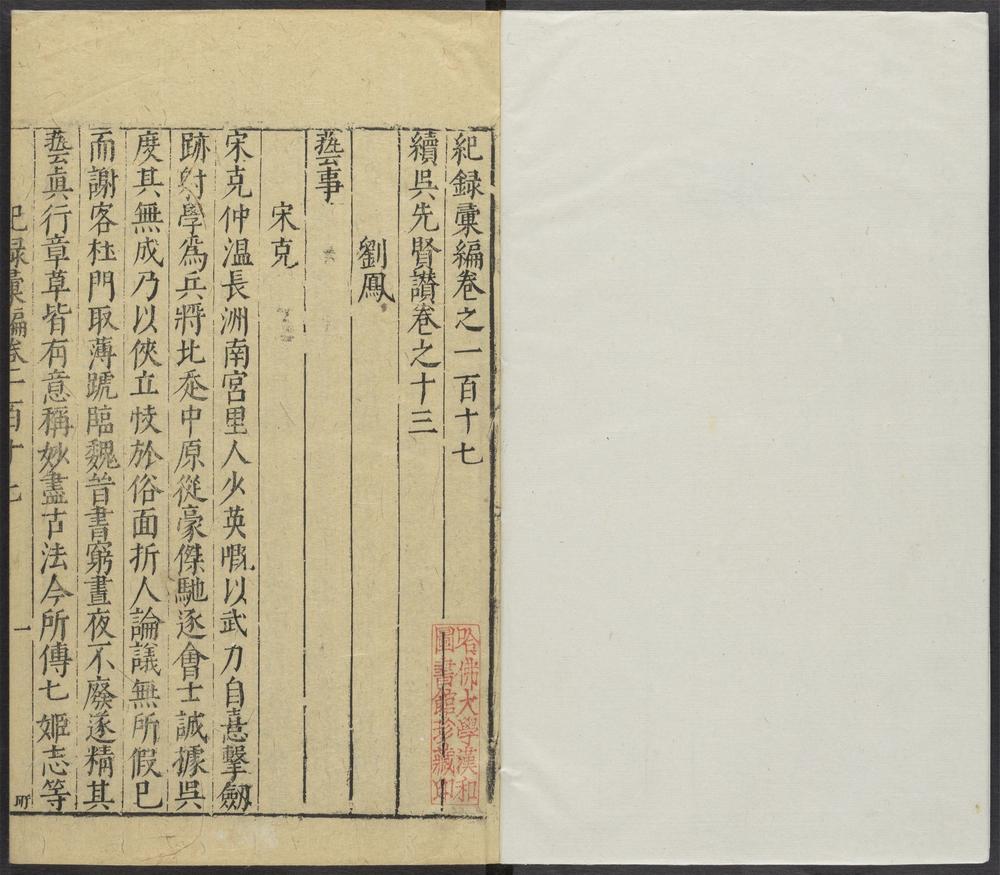 紀録彙編卷之一百十七
續吳先賢讃卷之十三
劉鳳
藝事
宋克
宋克仲温長洲南宮里人少英嘅以武力自憙擊劒
跡射學爲兵將北走中原從豪傑馳逐會士誠據吳
度其無成乃以俠立忮於俗面折人論議無所假已
而謝客杜門取薄蹏臨魏晉書窮晝夜不廢遂精其
藝真行章草皆有意稱妙盡古法今所傳七姬志等
紀録彙編卷一百十七
一
哈佛大學漢和
圖書館珍藏印